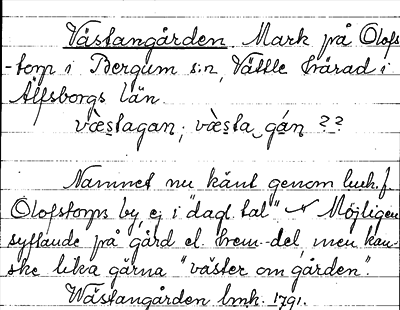 Västangården Mark på Olofs-
-torp i Bergum s:n, Vättle härad i
Älfsborgs län.
væstagan; væsta gán ??
Namnet nu känt genom lmk. f.
Olofstorps by, ej i "dagl. tal" Möjligen
syftande på gård el. hem-del, men kan-
ske lika gärna "väster om gården".
Wästangården lmk. 1791.